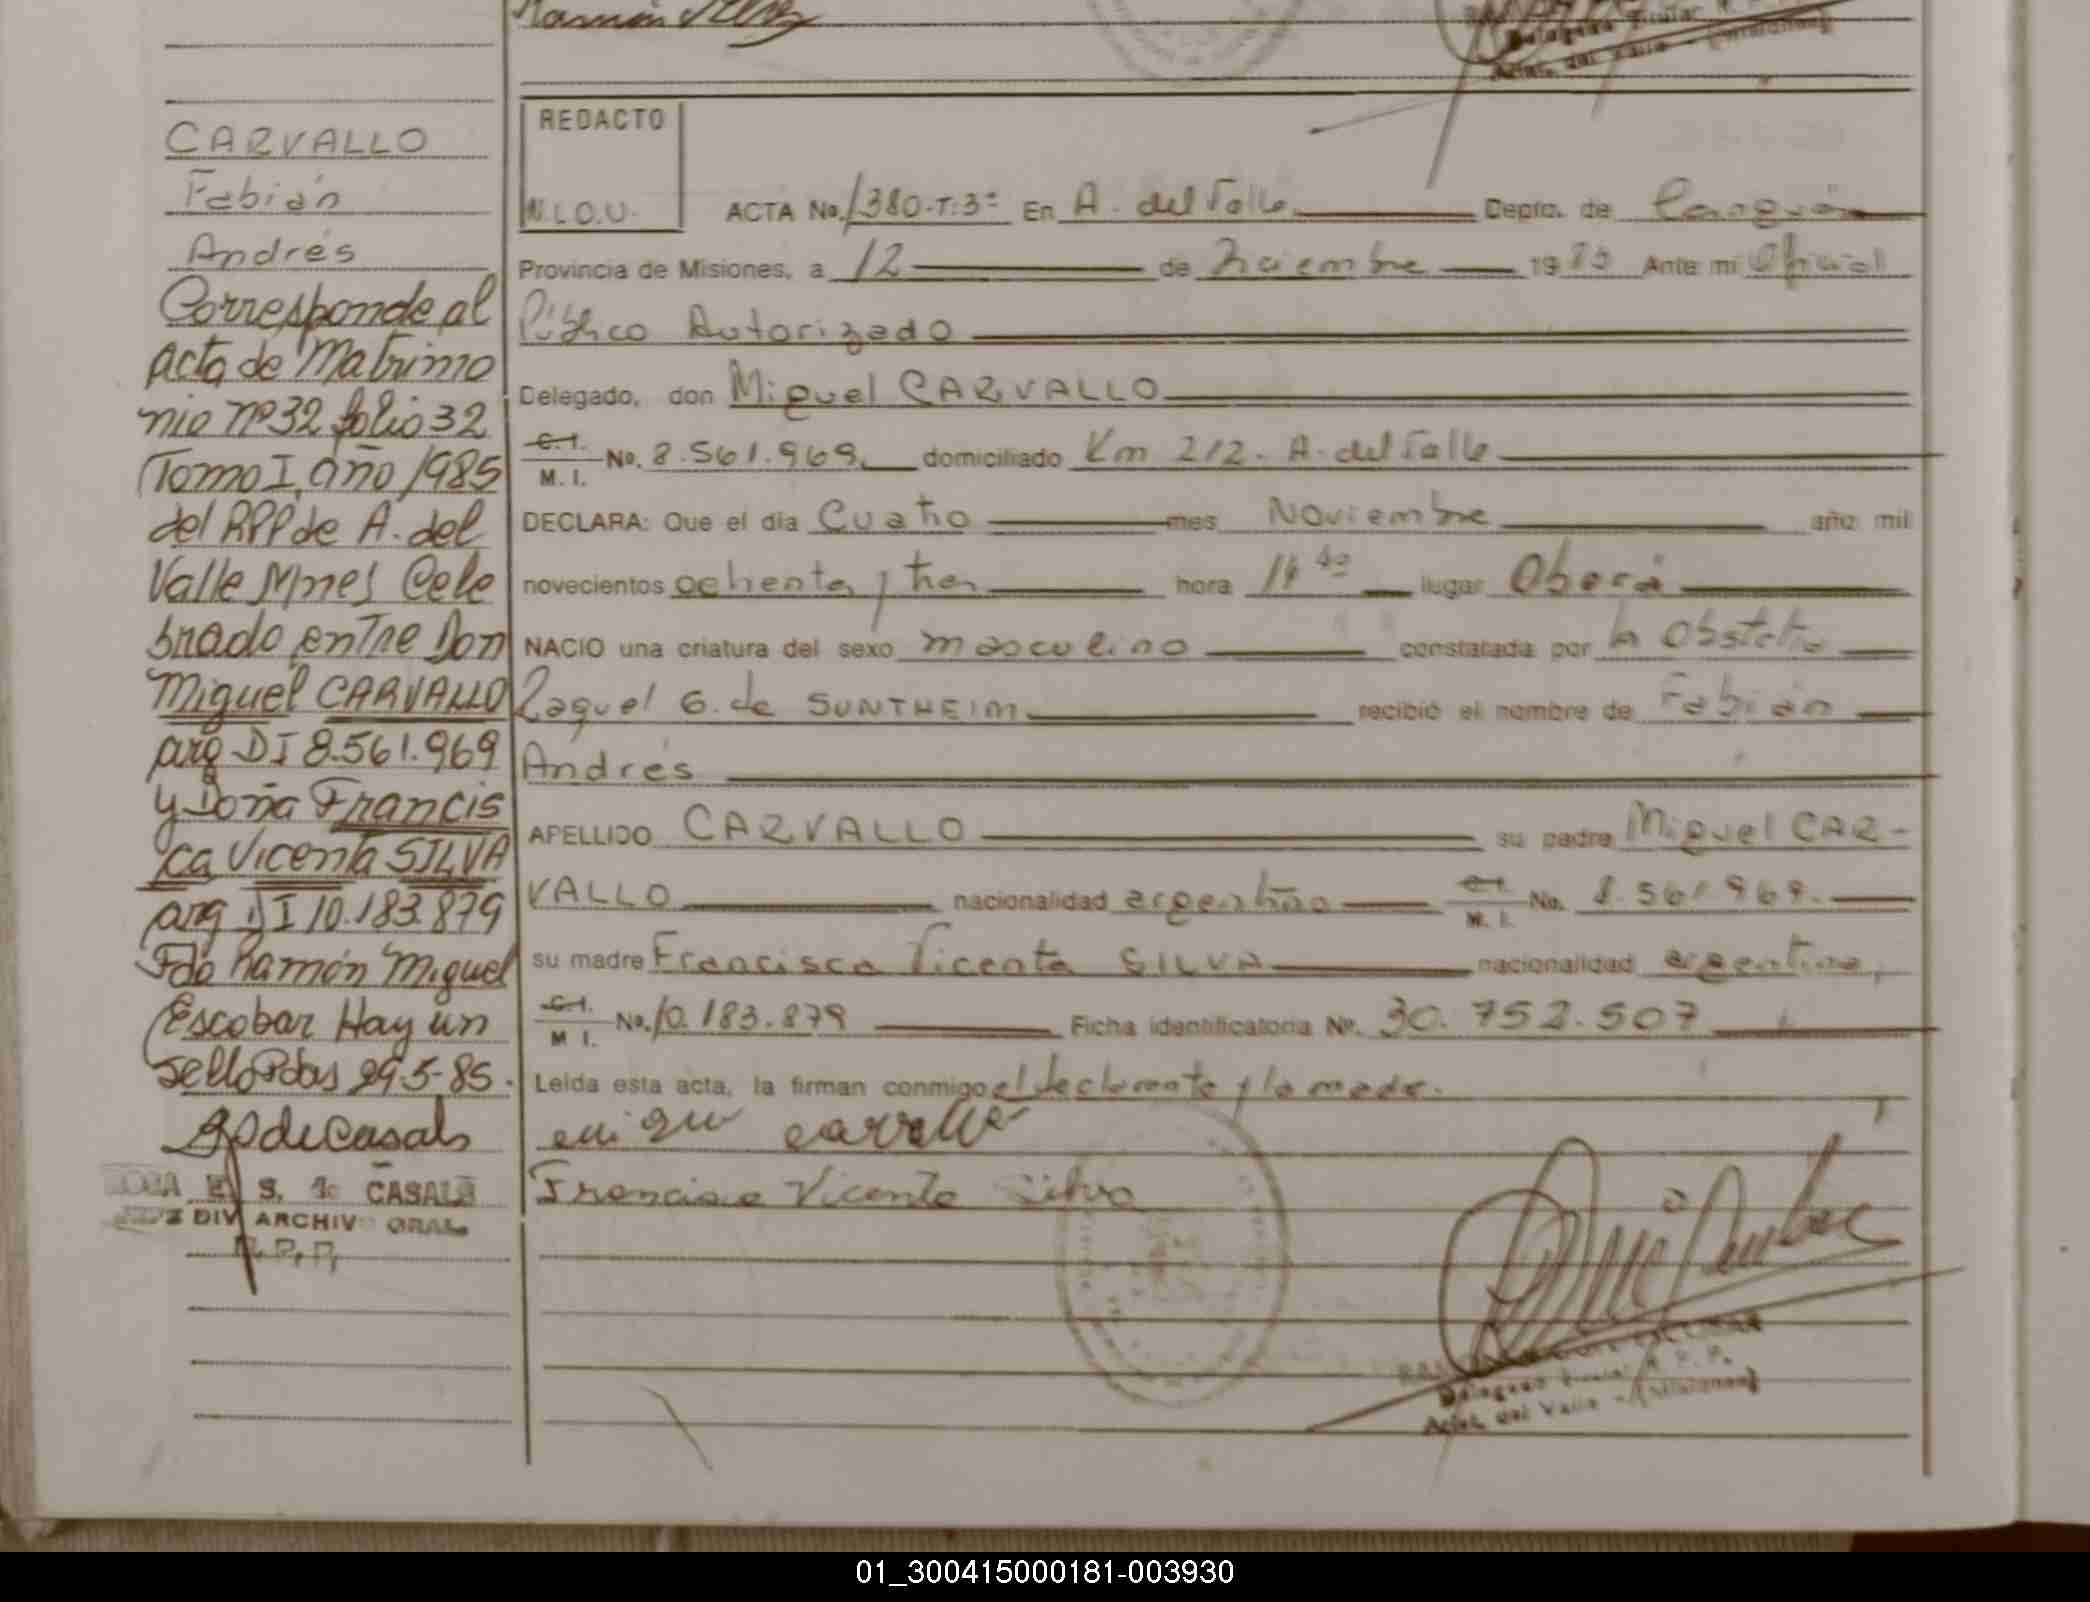 CARVALLO
Fabián
Andrés
Corresponde al
acta de Matrimo
nio Nº 32 folio 32
Tomo I, año 1985
del RPP de A. del
Valle Mnes Cele
brado entre Don
Miguel CARVALLO
arg DI 8.561.969
y Doña Francis
ca Vicenta SILVA
arg DI 10.183.879
Fdo Ramón Miguel
Escobar Hay un
sello Pdas 29-5-85.
S. de CASALS
DIV ARCHIVO GRAL
R.P.P.
REDACTO
ACTA No. 1380-T:3º En A. del Valle Depto. de
Provincia de Misiones, a 12 de Diciembre 19 Ante mi Oficial
Público Autorizado
Delegado, don Miguel CARVALLO
C.I. M.I. No. 8.561.969 domiciliado Km 212. A. del Valle
DECLARA: Que el día Cuatro mes Noviembre año mil
novecientos ochenta y tres hora lugar Oberá
NACIO una criatura del sexo masculino constatada por la Obstetra
Raquel G. de SUNTHEIM recibió el nombre de Fabián
Andrés
APELLIDO CARVALLO su padre Miguel CAR-
VALLO nacionalidad argentino C.I. M.I. No. 8.561.969.
su madre Francisca Vicenta SILVA nacionalidad argentina,
C.I. M.I. No. 10.183.879 Ficha identificatoria Nº. 30.752.507
Leída esta acta, la firman conmigo el declarante y la madre.
Francisca Vicenta Silva
Delegado Titular R.P.P.
Arist. del Valle - (Misiones)
01_300415000181-003930